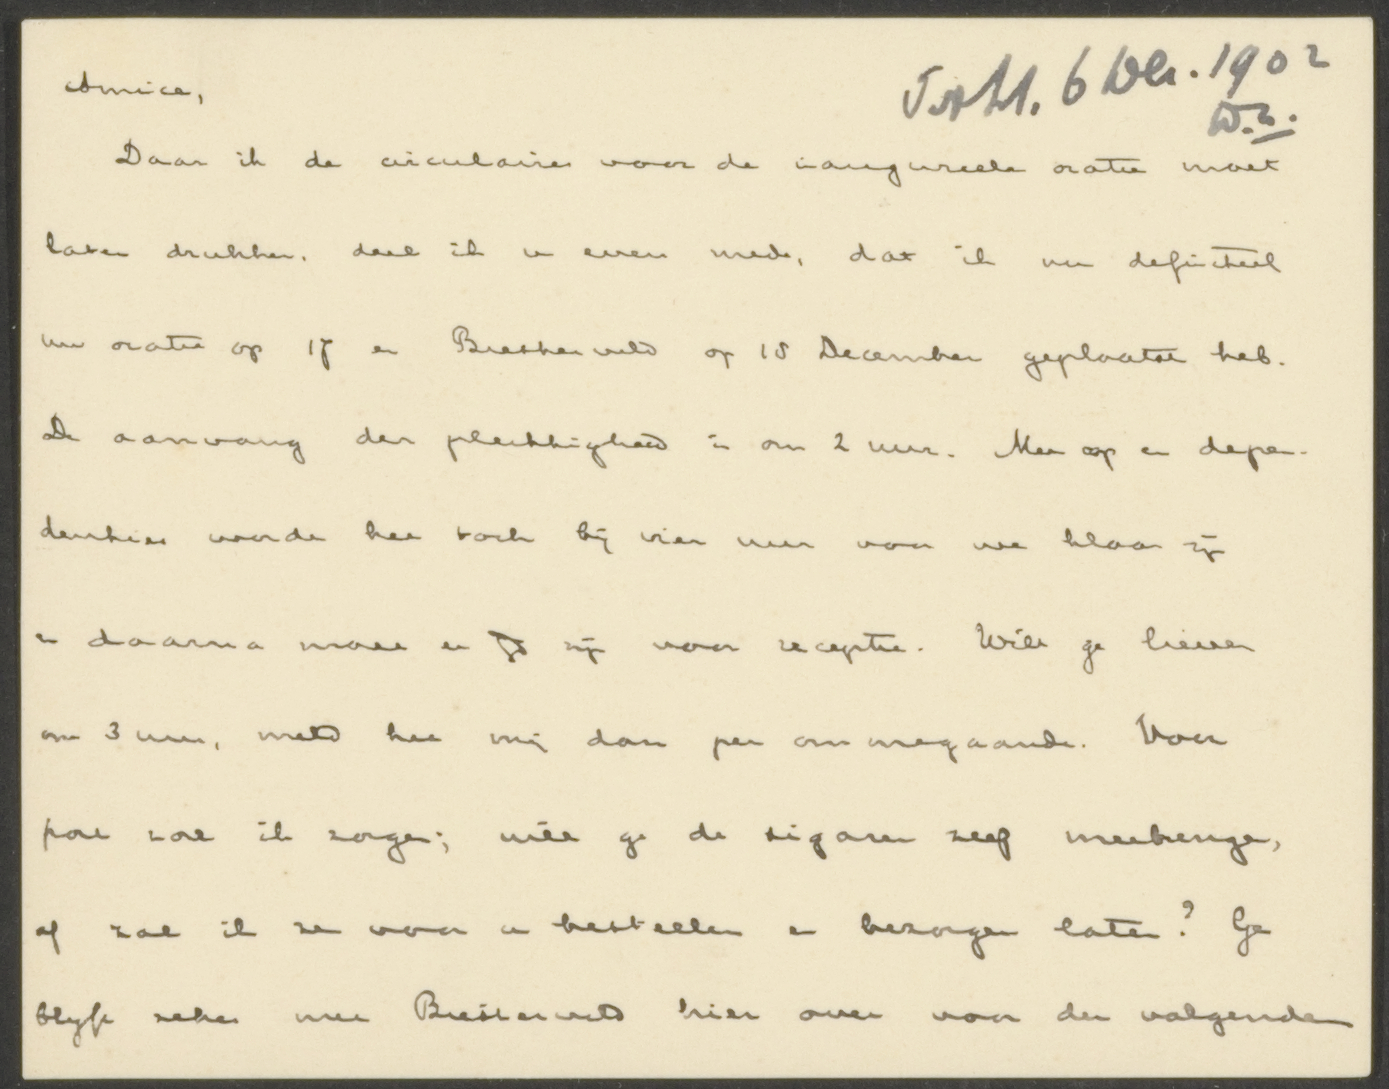 6 Dec. 1902
Amice,
Daar ik de circulaires voor de inaugureele oratie moet
laten drukken, deel ik u even mede, dat ik nu definitief
uw oratie op 17 en Biesterveld op 18 December geplaatst heb.
De aanvang der plechtigheid is om 2 uur. Met op en depen-
denties wordt het toch bij vier uur voor we klaar zijn
en daarna moet er zijn voor receptie. Wilt ge liever
om 3 uur, meld het mij dan per ommegaande. Voor
port zal ik zorgen; wilt ge de sigaren zelf meebrengen,
of zal ik ze voor u bestellen en bezorgen laten? Ge
blijft zeker met Biesterveld hier over voor den volgenden